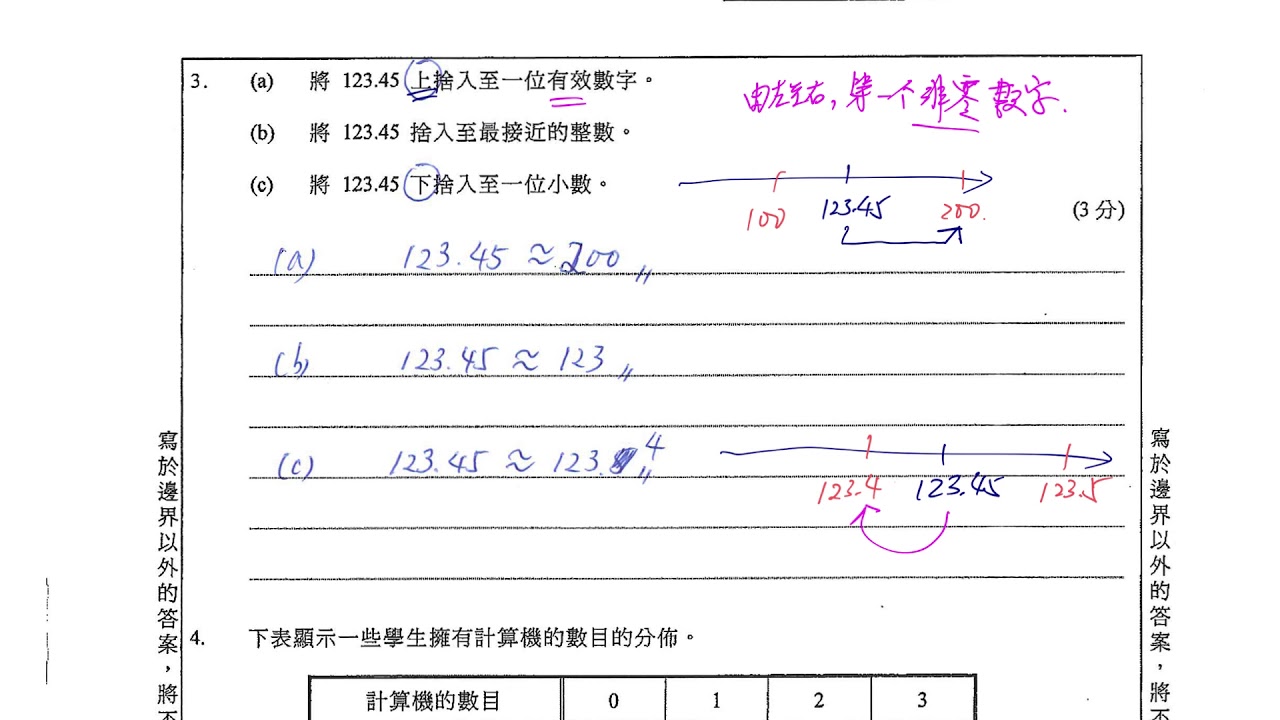 3. (a) 將 123.45 上捨入至一位有效數字。
由左至右, 第一个非零數字.
(b) 將 123.45 捨入至最接近的整數。
(c) 將 123.45 下捨入至一位小數。
(3 分)
100 123.45 200.
(a) 123.45 ≈ 200 〃
(b) 123.45 ≈ 123 〃
(c) 123.45 ≈ 123.4 〃
123.4 123.45 123.5
4. 下表顯示一些學生擁有計算機的數目的分佈。
計算機的數目 0 1 2 3
寫於邊界以外的答案，將不
寫於邊界以外的答案，將不